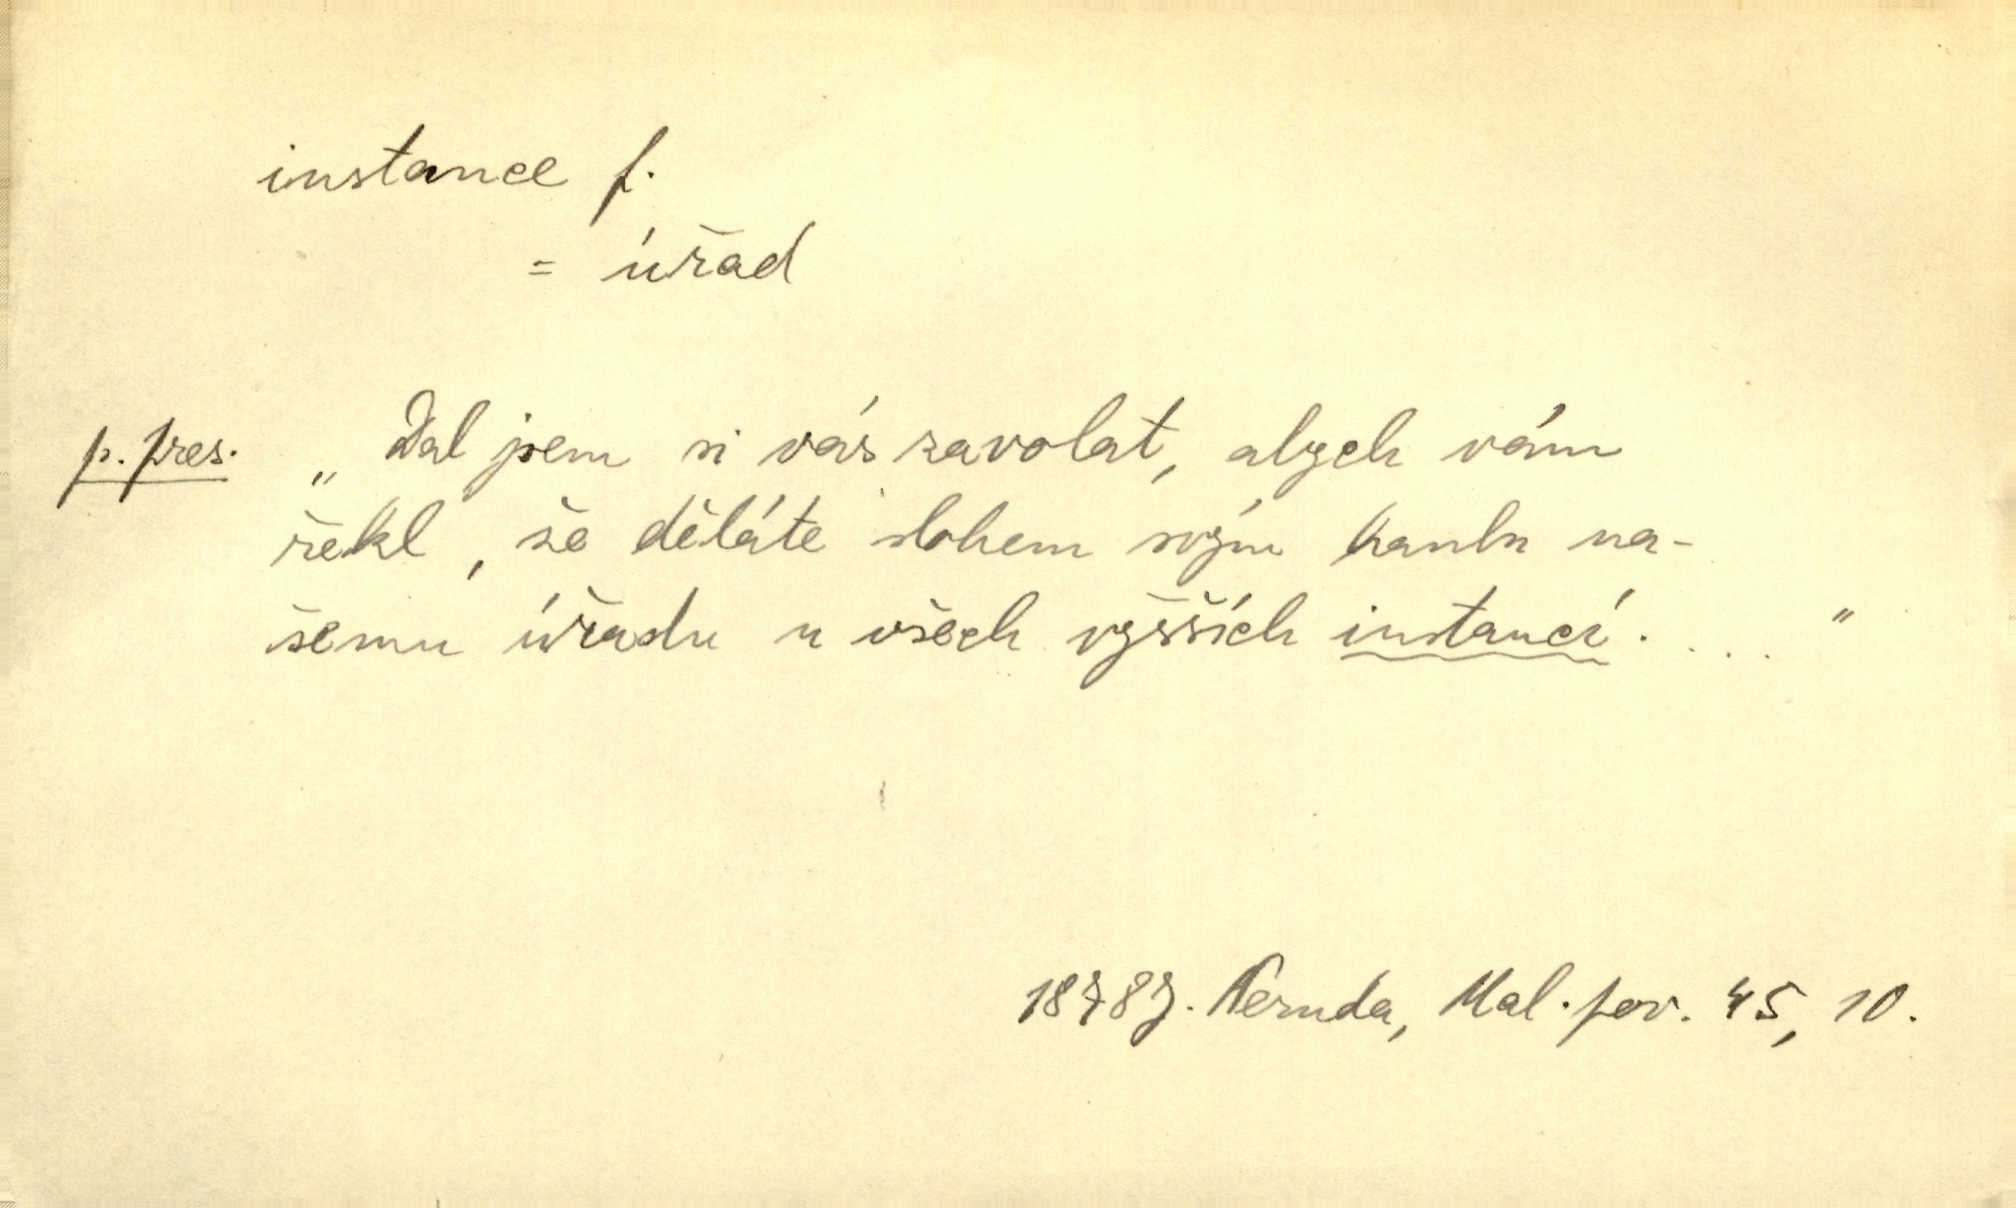 instance f.
= úřad
p. pres. „Dal jsem si vás zavolat, abych vám
řekl, že děláte slohem svým hanbu na-
šemu úřadu u všech vyšších instancí. ... "
1878 J. Neruda, Mal. pov. 45, 10.